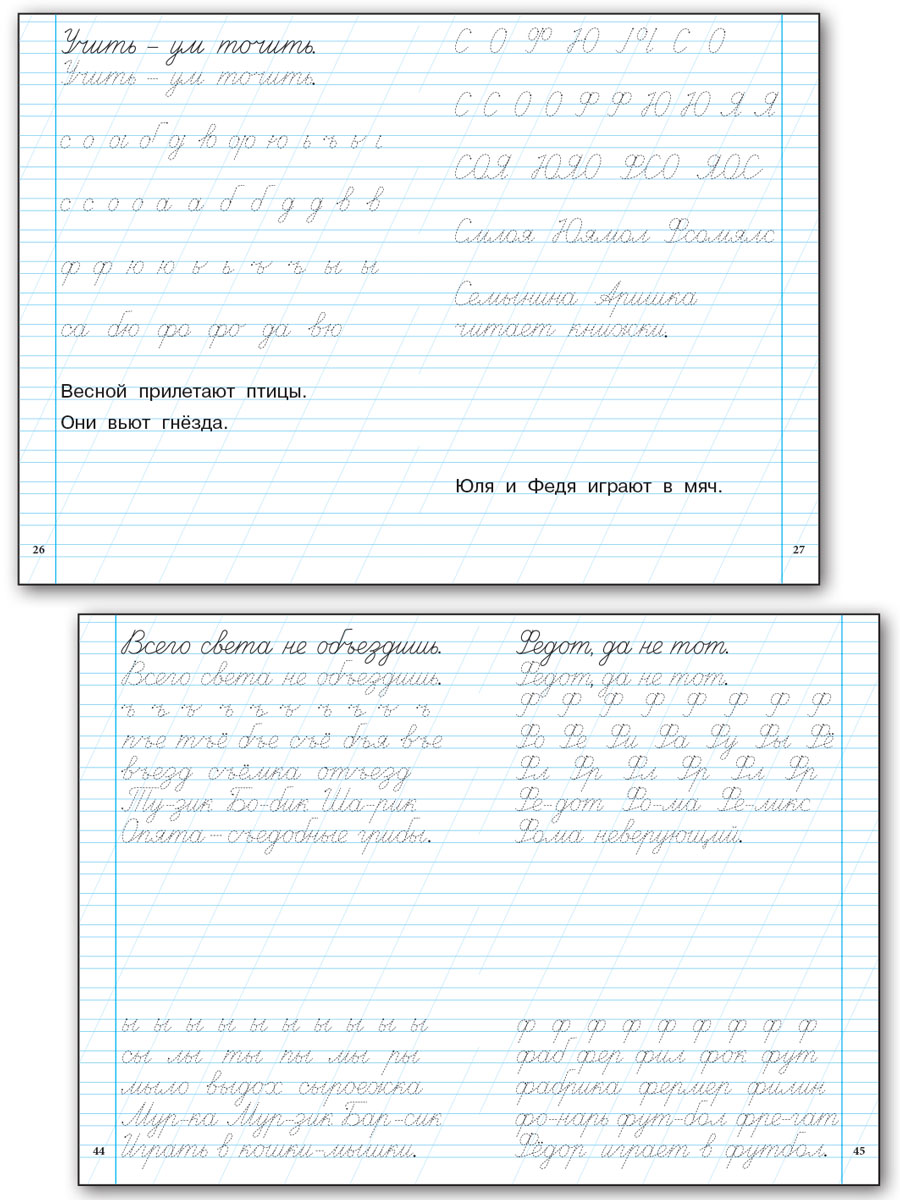 Учить – ум точить.
Учить – ум точить.
с о а б д в ф ю ь ъ ы
с с о о а а б б д д в в
ф ф ю ю ь ь ъ ъ ы ы
са бю фа фо да вю
Весной прилетают птицы.
Они вьют гнёзда.
26
С О Ф Ю С О
С С О О Ф Ф Ю Ю Я Я
СОЯ ЮЯО ФСО ЯОС
Смлоя Юямол Фсомялс
Семынина Аришка
читает книжки.
Юля и Федя играют в мяч.
27
Всего света не объездишь.
Всего света не объездишь.
ъ ъ ъ ъ ъ ъ ъ ъ ъ ъ
пъе тъё бъе съё бъя въе
въезд съёмка отъезд
Ту-зик Бо-бик Ша-рик
Опята – съедобные грибы.
ы ы ы ы ы ы ы ы ы ы
сы лы ты пы мы ры
мыло выдох сыроежка
Мур-ка Мур-зик Бар-сик
Играть в кошки-мышки.
44
Федот, да не тот.
Федот, да не тот.
Ф Ф Ф Ф Ф Ф Ф Ф
Фо Фе Фи Фа Фу Фы Фё
Фл Фр Фл Фр Фл Фр
Фе-дот Фо-ма Фе-ликс
Фома неверующий.
ф ф ф ф ф ф ф ф ф
фаб фер фил фок фут
фабрика фермер филин
фо-нарь фут-бол фре-гат
Фёдор играет в футбол.
45